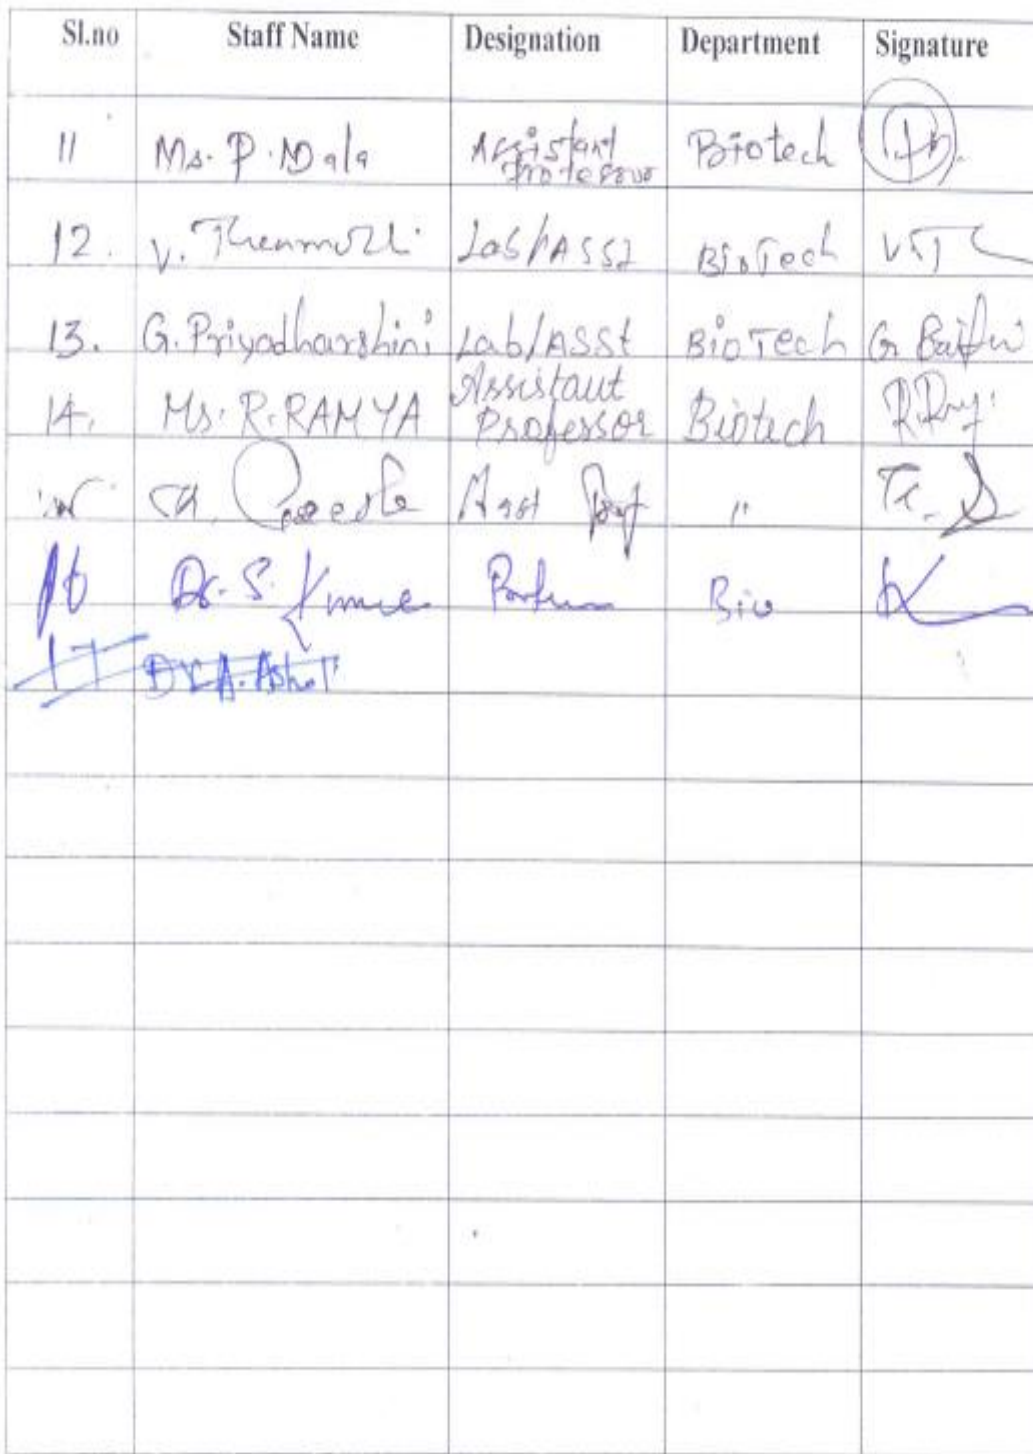 Sl.no Staff Name Designation Department Signature
11 Ms. P. Mala Assistant Professor Biotech
12. V. Thenmozhi Lab/Asst BioTech V.T
13. G. Priyadharshini Lab/Asst BioTech G.
14. Ms. R. RAMYA Assistant Professor Biotech
Asst Prof "
16 Dr. S. Bio
17 Dr. A. Ashok